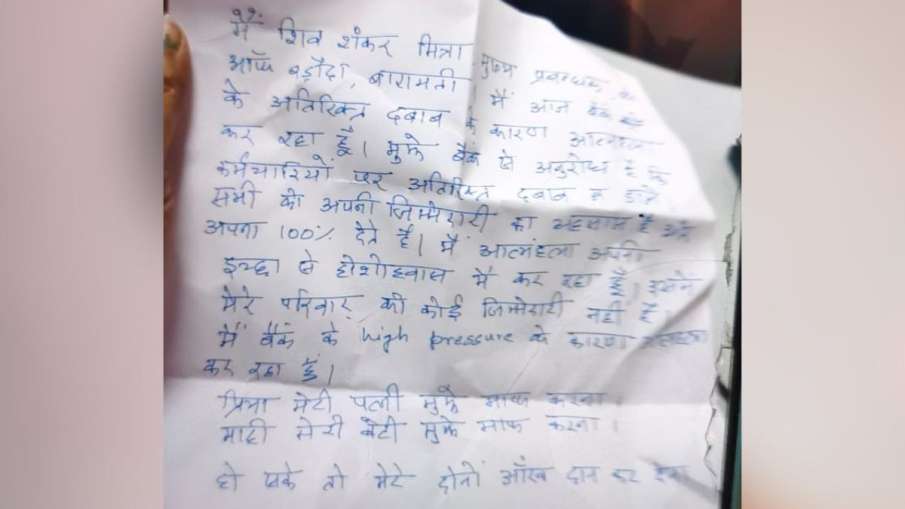 मैं शिव शंकर मित्रा मुख्य प्रबन्धक,
ऑफ बड़ौदा, बारामती मैं आज बैंक
के अतिरिक्त दबाव के कारण आत्महत्या
कर रहा हूँ। मुझे बैंक से अनुरोध है कि
कर्मचारियों पर अतिरिक्त दबाव न डाले
सभी को अपनी जिम्मेदारी का अहसास है और
अपना 100% देते है। मैं आत्महत्या अपनी
इच्छा से होशोहवास मैं कर रहा हूँ, इसमे
मेरे परिवार की कोई जिम्मेदारी नहीं है।
मैं बैंक के high pressure के कारण आत्महत्या
कर रहा हूँ।
प्रिया मेरी पत्नी मुझे माफ करना।
माही मेरी बेटी मुझे माफ करना।
हो सके तो मेरे दोनों आँख दान कर देना